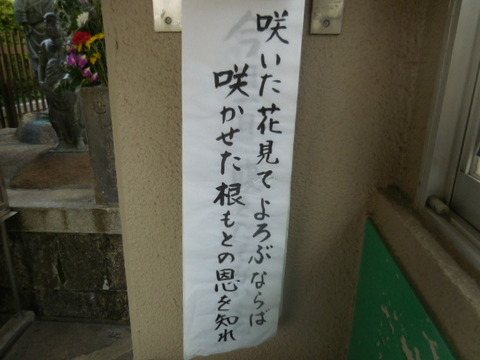 咲いた花見てよろぶならば
咲かせた根もとの恩を知れ